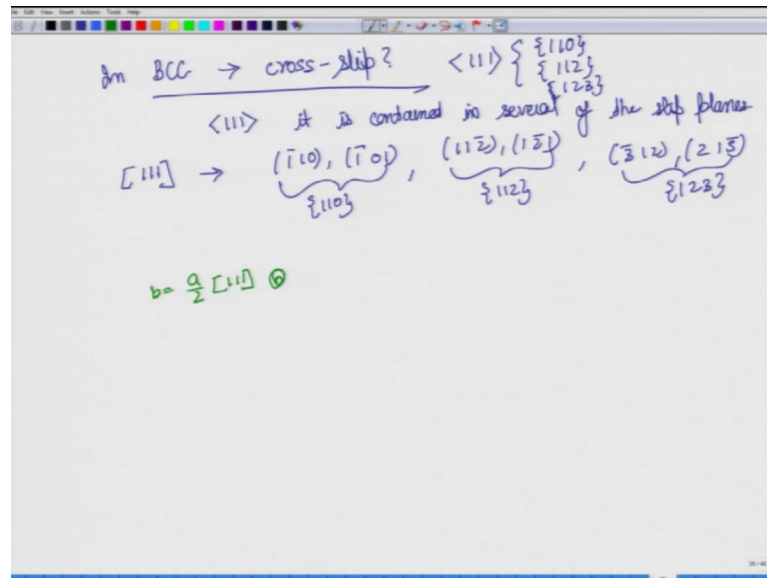 File Edit View Insert Actions Tools Help
In BCC → cross-slip? <111> { {110}
{112}
{123}
<111> it is contained in several of the slip planes
[111] → (1̄10), (1̄01), (112̄), (12̄1), (3̄12), (213̄)
{110} {112} {123}
b = a/2 [111]